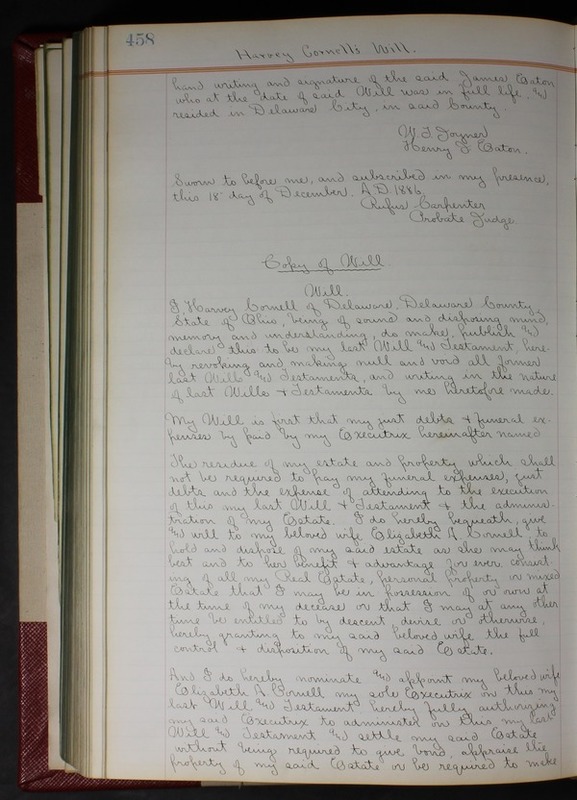 458
Harvey Cornell's Will.
hand writing and signature of the said James Eaton
who at the date of said Will was in full life, and
resided in Delaware City, in said County.
W. T. Joyner
Henry F. Eaton.
Sworn to before me, and subscribed in my presence,
this 18" day of December, A.D. 1886,
Rufus Carpenter
Probate Judge
Copy of Will
Will.
I, Harvey Cornell of Delaware, Delaware County,
State of Ohio, being of sound and disposing mind,
memory and understanding, do make, publish and
declare this to be my last Will and Testament, here-
by revoking and making null and void all former
last Wills and Testaments, and writing in the nature
of last Wills & Testaments by me heretofore made.
My Will is first that my just debts & funeral ex-
penses by paid by my Executrix hereinafter named
The residue of my estate and property which shall
not be required to pay my funeral expenses, just
debts and the expense of attending to the execution
of this my last Will & Testament & the adminis-
tration of my Estate. I do hereby bequeath, give
and will to my beloved wife Elizabeth A. Cornell to
hold and dispose of my said estate as she may think
best and to her benefit & advantage for ever, consist-
ing of all my Real Estate, personal property or mixed
Estate that I may be in possession of or own at
the time of my decease or that I may at any other
time be entitled to by descent, devise or otherwise,
hereby granting to my said beloved wife the full
control & disposition of my said Estate.
And I do hereby nominate and appoint my beloved wife
Elizabeth A. Cornell my sole Executrix on this my
last Will and Testament hereby fully authorizing
my said Executrix to administer on this my last
Will and Testament and settle my said Estate
without being required to give bond, appraise the
property of my said Estate or be required to make